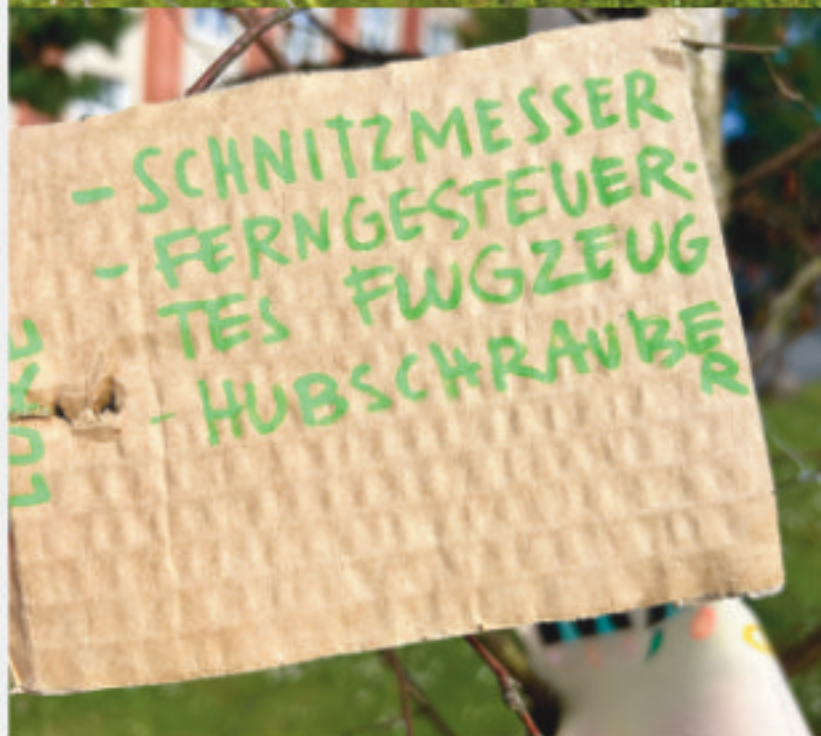 - SCHNITZMESSER
- FERNGESTEUER-
TES FLUGZEUG
- HUBSCHRAUBER